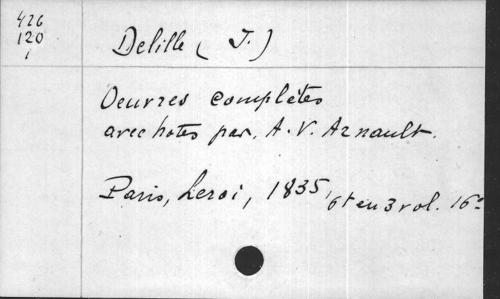 426
120
1
Delille (J.)
Oeuvres complètes
avec notes par. A. V. Arnault.
Paris, Leroi, 1835, 6 t en 3 vol. 16°